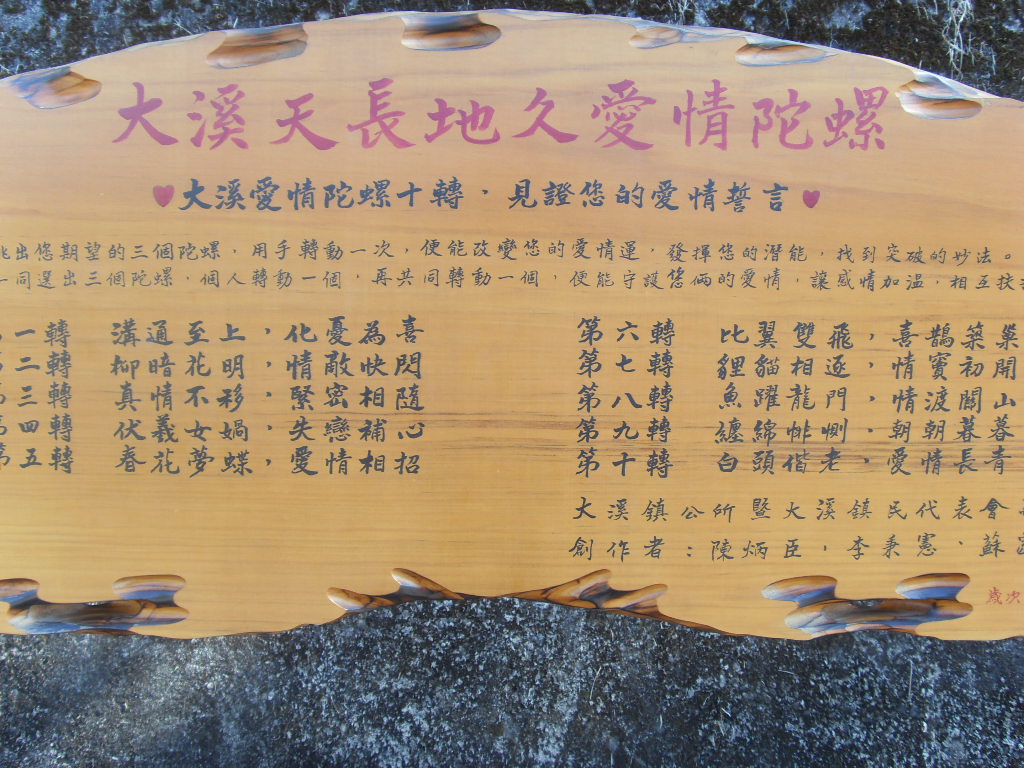 大溪天長地久愛情陀螺
大溪愛情陀螺十轉,見證您的愛情誓言
出您期望的三個陀螺,用手轉動一次,便能改變您的愛情運,發揮您的潛能,找到突破的妙法。
一同選出三個陀螺,個人轉動一個,再共同轉動一個,便能守護您倆的愛情,讓感情加溫,相互扶
一轉 溝通至上,化憂為喜
二轉 柳暗花明,情敵快閃
三轉 真情不移,緊密相隨
第四轉 伏羲女媧,失戀補心
第五轉 春花夢蝶,愛情相招
第六轉 比翼雙飛,喜鵲築巢
第七轉 貍貓相逐,情竇初開
第八轉 魚躍龍門,情渡關山
第九轉 纏綿悱惻,朝朝暮暮
第十轉 白頭偕老,愛情長青
大溪鎮公所暨大溪鎮民代表會
創作者:陳炳臣,李秉憲、蘇
歲次